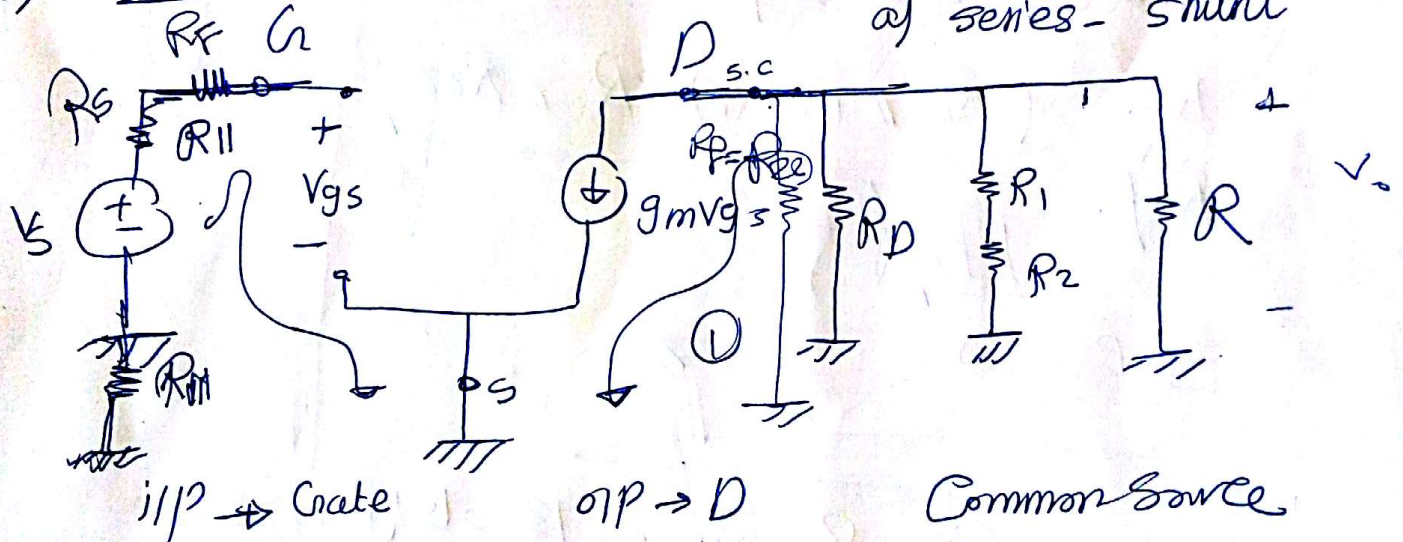 a) series - shunt
RF G
D s.c
RS
R11
+
+
Vgs
gmVgs
RD
R1
R
Vo
VS
+
-
-
R2
-
1
S
i/p → Gate
o/p → D
Common Source